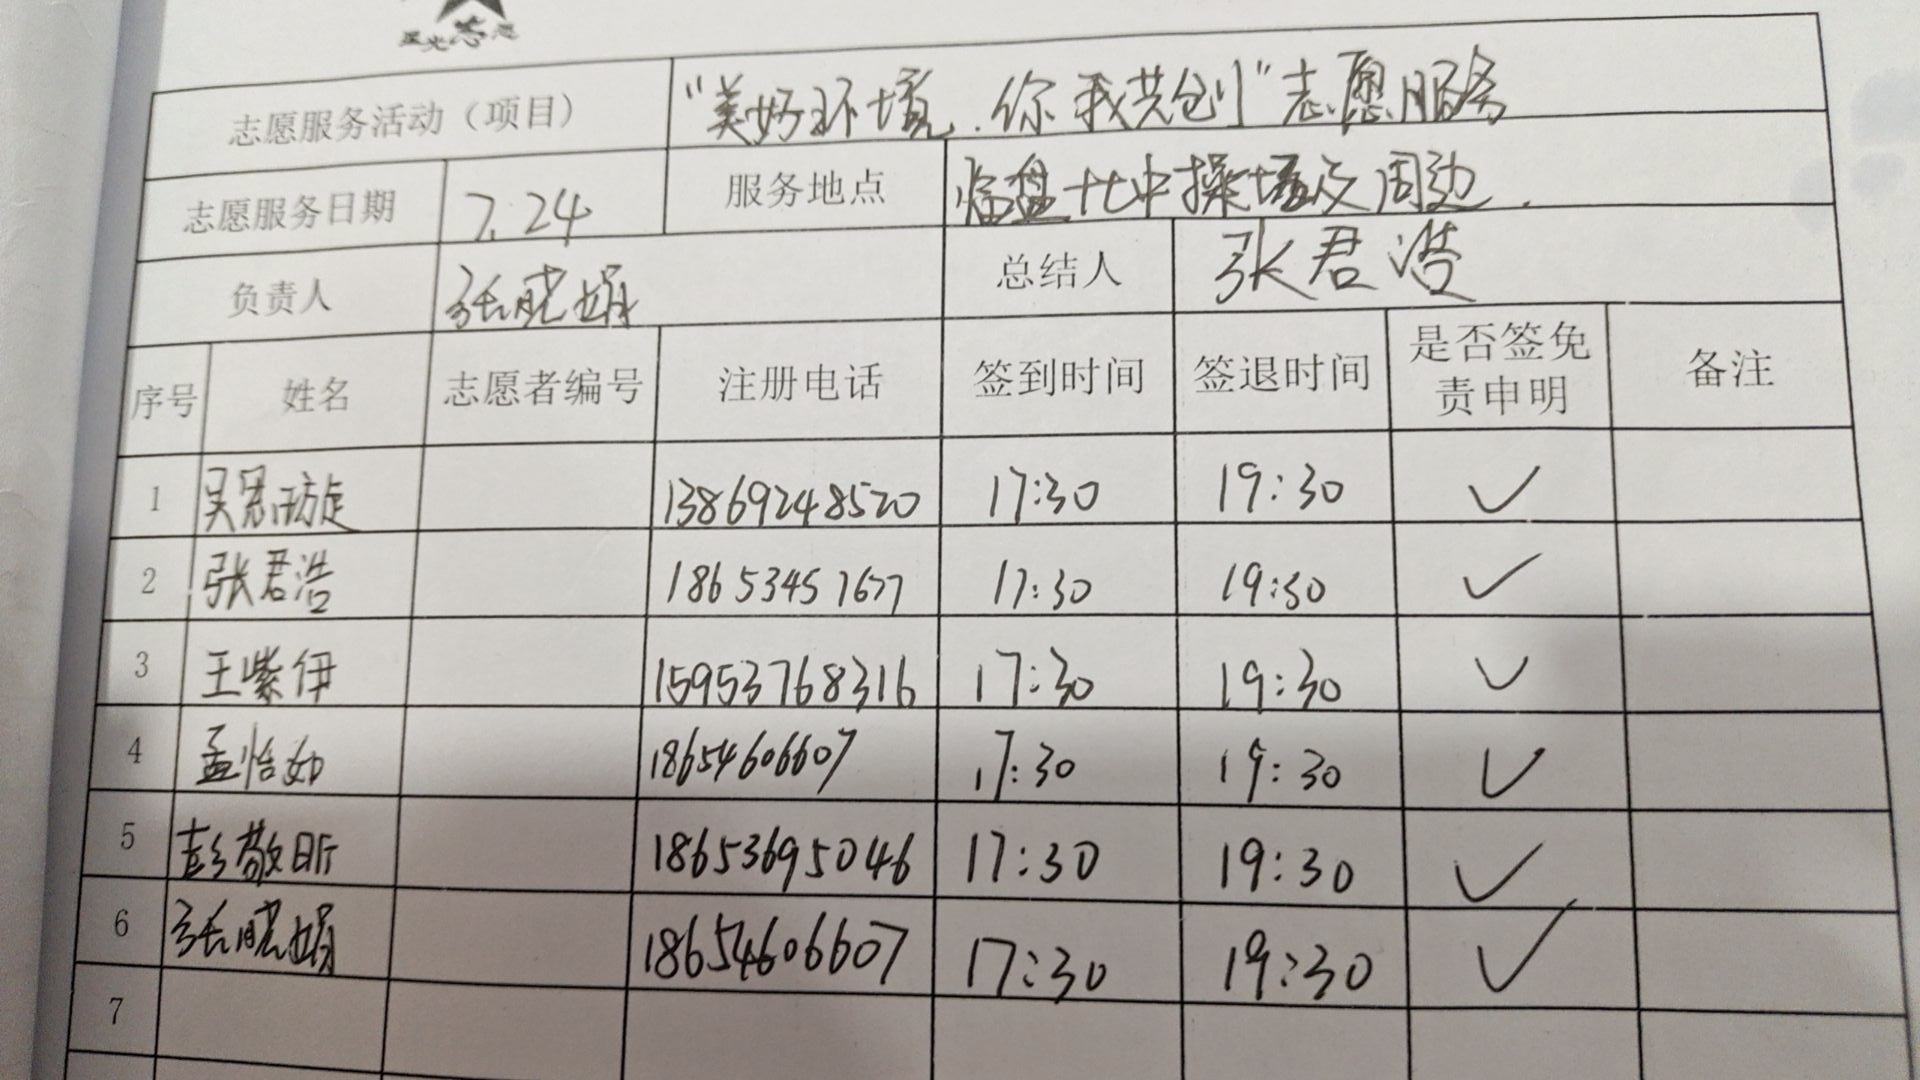 星光志愿
志愿服务活动（项目） “美好环境.你我共创”志愿服务
志愿服务日期 7.24 服务地点 临盘十七中操场及周边.
负责人 张晓娟 总结人 张君浩
序号 姓名 志愿者编号 注册电话 签到时间 签退时间 是否签免责申明 备注
1 吴 13869248520 17:30 19:30 ✓
2 张君浩 18653457677 17:30 19:30 ✓
3 王紫伊 15953768316 17:30 19:30 ✓
4 孟怡如 18654606607 17:30 19:30 ✓
5 彭敬昕 18653695046 17:30 19:30 ✓
6 张晓娟 18654606607 17:30 19:30 ✓
7